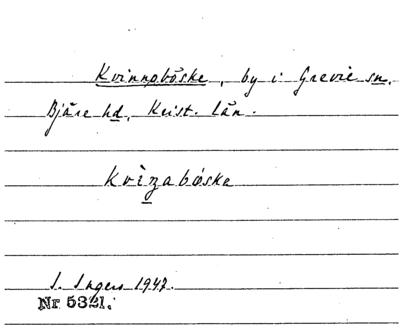 Kvinnaböske, by i Grevie sn,
Bjäre hd, Krist. län.
Kvìnabøske
I. Ingers 1942.
Nr 5321.